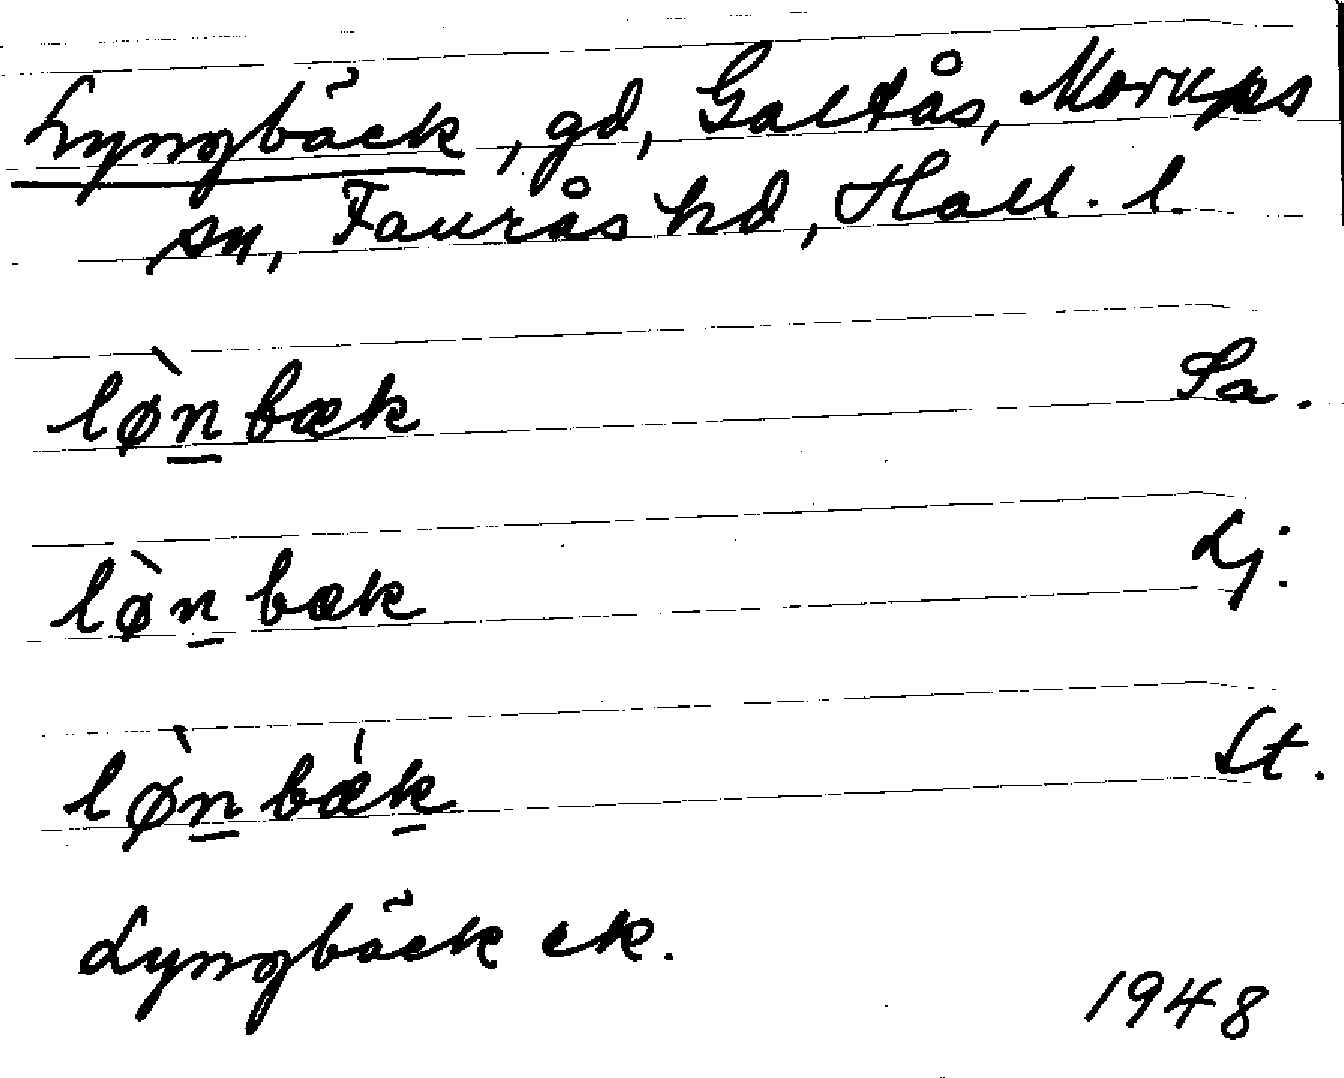 Lyngbäck, gd, Galtås, Morups
sn, Faurås hd, Hall. l.
lø̀n̲bæk Sa.
lø̀n̲bæk Lj.
lø̀n̲bǽk̲ St.
Lyngbäck ek.
1948